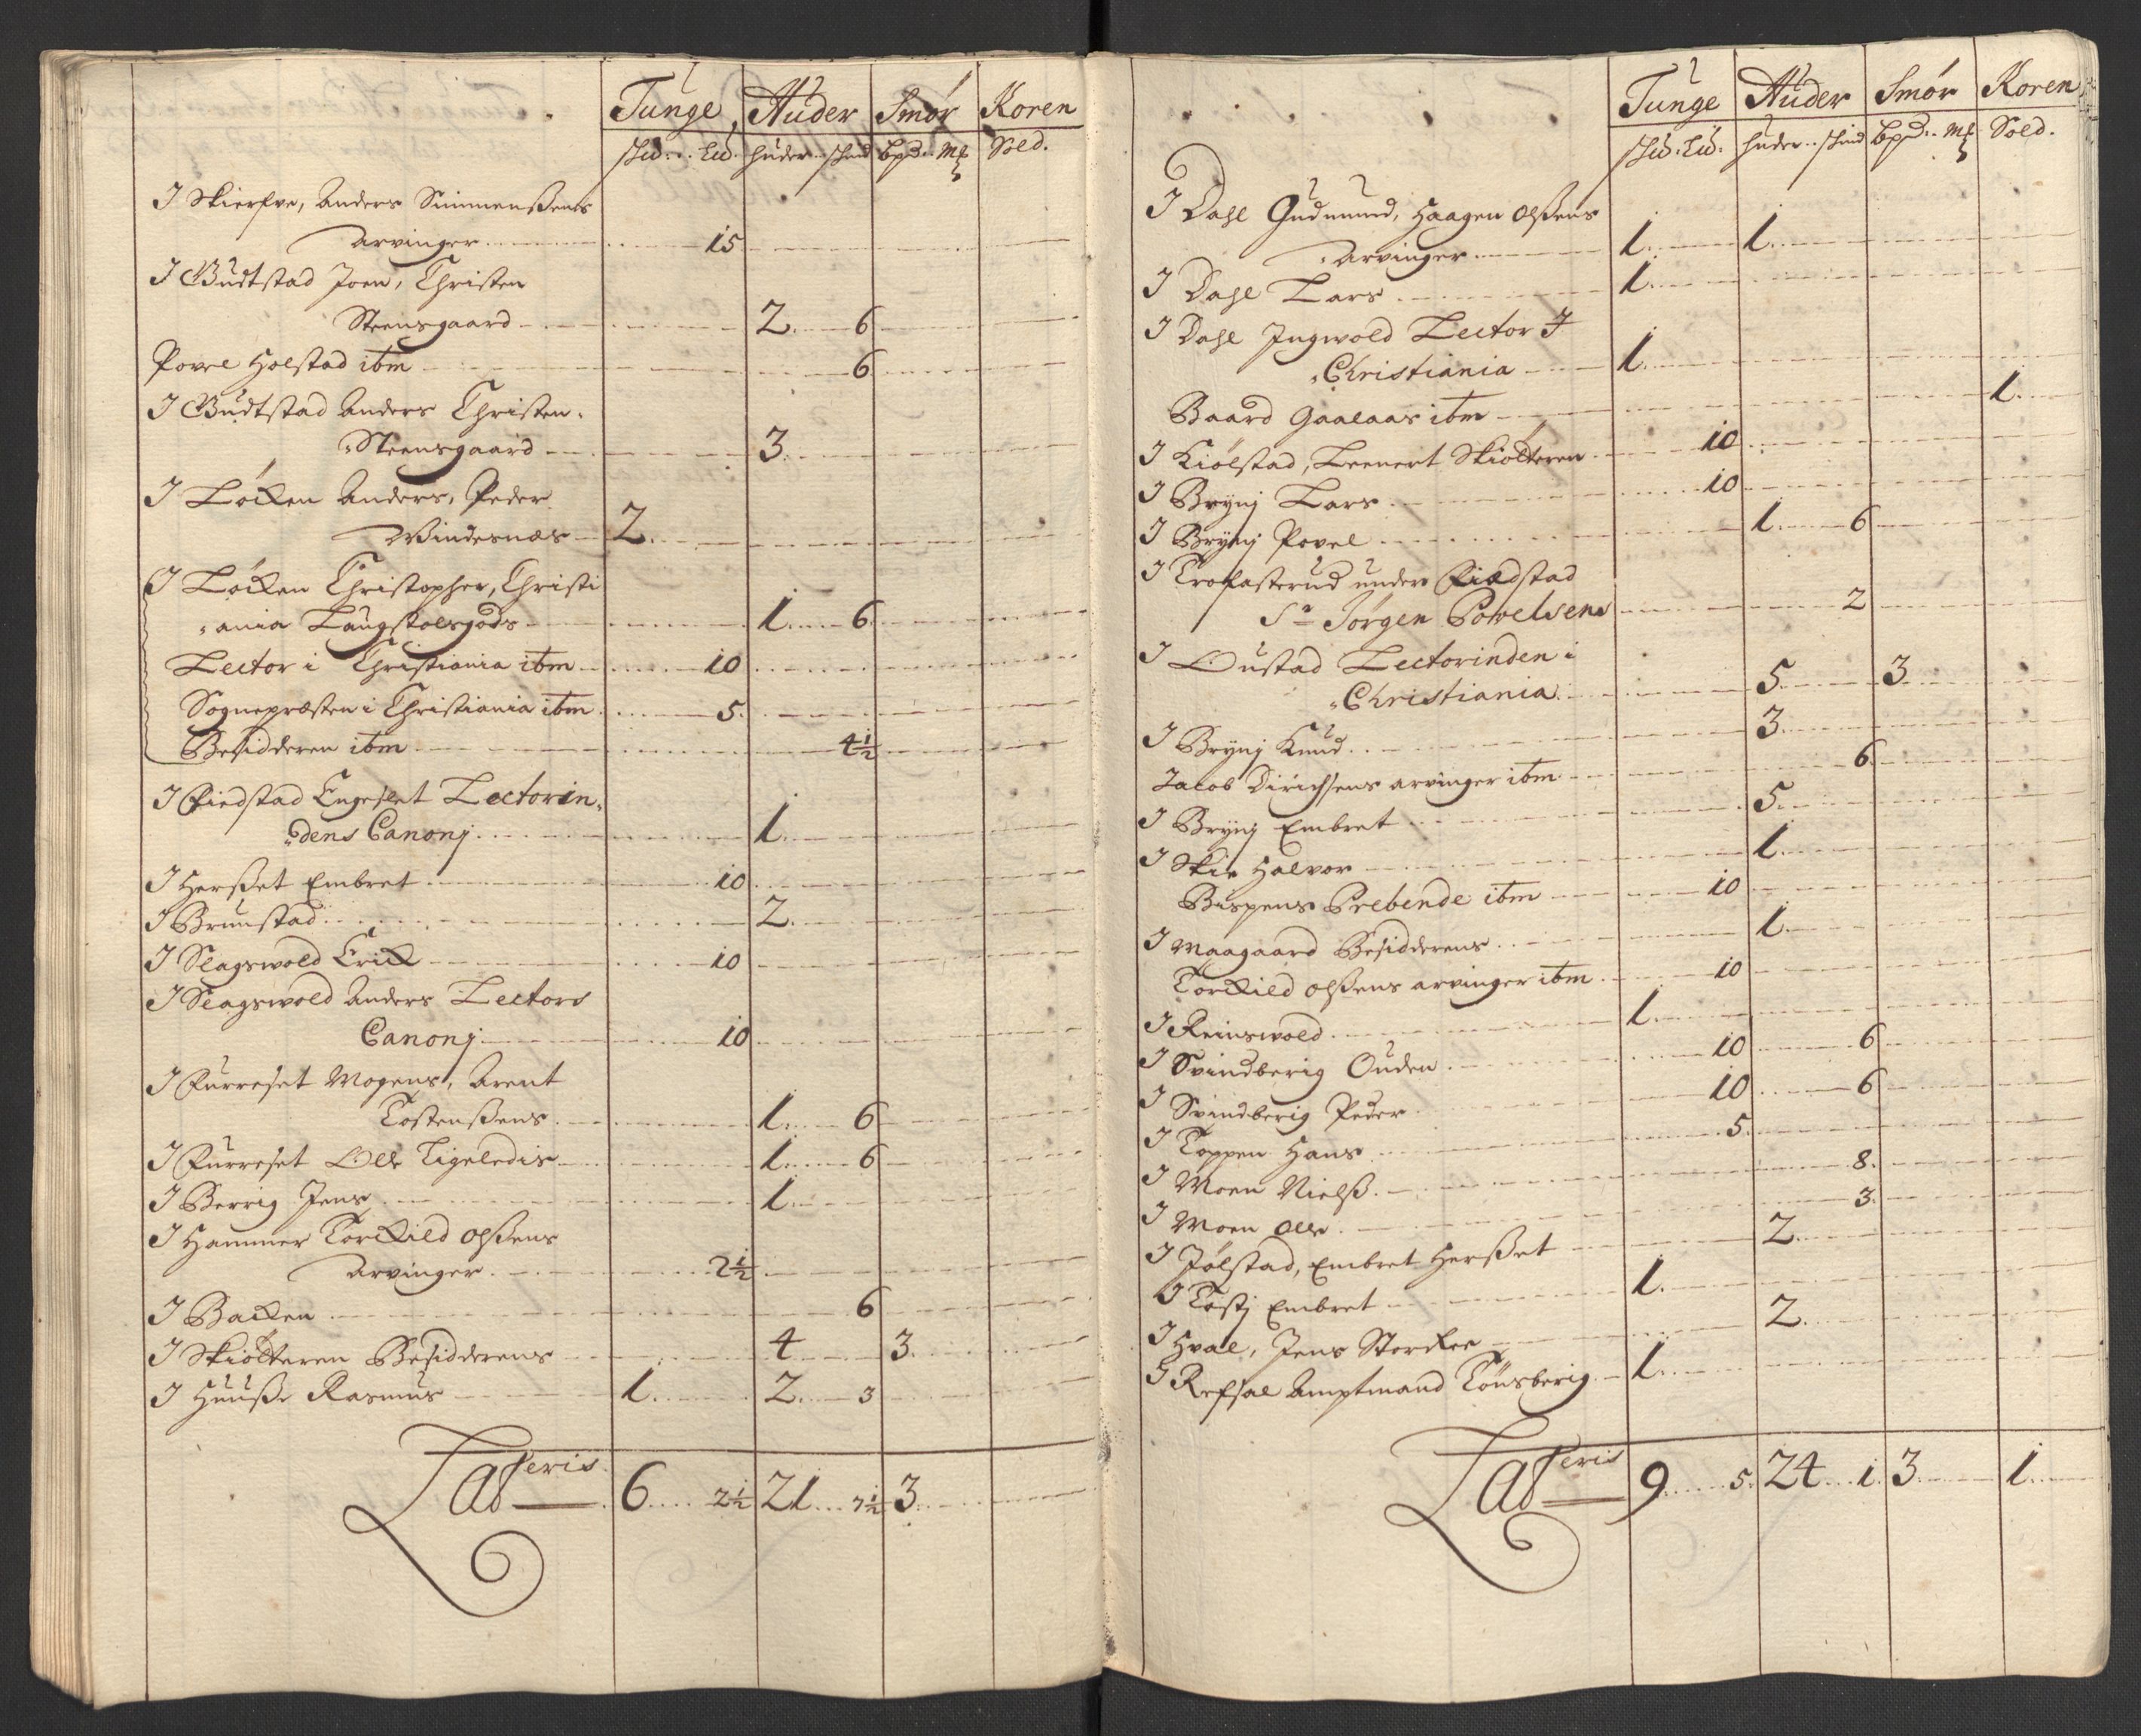 Tunge Huder Smør Koren
Skd: Ld. huder skind bpd: Mk Sold.
I Skierfve, Anders Simmenßens
arvinger 15
I Budtstad Joen, Christen
Steensgaard 2 6
Povel Holstad ibm 6
I Budtstad Anders Christen
Steensgaard 3
I Løcken Anders, Peder
Windesnæs 2
I Løcken Christopher, Christi
ania Laugstolsgods 1 6
Lector i Christiania ibm 10
Sognepresten i Christiania ibm 5
Besidderen ibm 4½
I Fiedstad Engeslet Lectorin
dens Canonj 1
I Herßet Embret 10
I Brunstad 2
I Slagswold Erick 10
I Slagswold Anders Lectors
Canonj 10
I Furreset Mogens, Arent
Tostenßens 1 6
I Furreset Olle Ligeledis 1 6
I Berrig Jens 1
I Hammer Torckild Olßens
arvinger 2½
I Backen 6
I Skiølteren Besidderens 4 3
I Huuße Rasmus 1 2 3
Lateris 6 2½ 21 7½ 3
Tunge Huder Smør Koren
Skd: Ld: huder skind bpd: Mk Sold.
I Dahl Gudmund, Haagen Olßens
arvinger 1 1
I Dahl Lars 1
I Dahl Ingwold Lector I
Christiania 1
Baard Gaalaas ibm 1
I Kiølstad, Leenert Skiølteren 10
I Brynj Lars 10
I Brynj Povel 1 6
I Trofasterud under Fiedstad
Sr Jørgen Powelsens 2
I Oustad Lectorinden i
Christiania 5 3
I Brynj Knud 3
Jacob Dirichsens arvinger ibm 6
I Brynj Embret 5
I Skie Halvor 1
Bispens Prebende ibm 10
I Maagaard Besidderens 1
Torckild Olßens arvinger ibm 10
I Reinswold 1
I Svindberig Ouden 10 6
I Svindberig Peder 10 6
I Toppen Hans 5
I Moen Nielß 8
I Moen Olle 3
I Jølstad, Embret Herßet 2
I Tostj Embret 1
I Hval, Jens Storckee 2
I Refsal Amptmand Tønsberig 1
Lateris 9 5 24 1 3 1